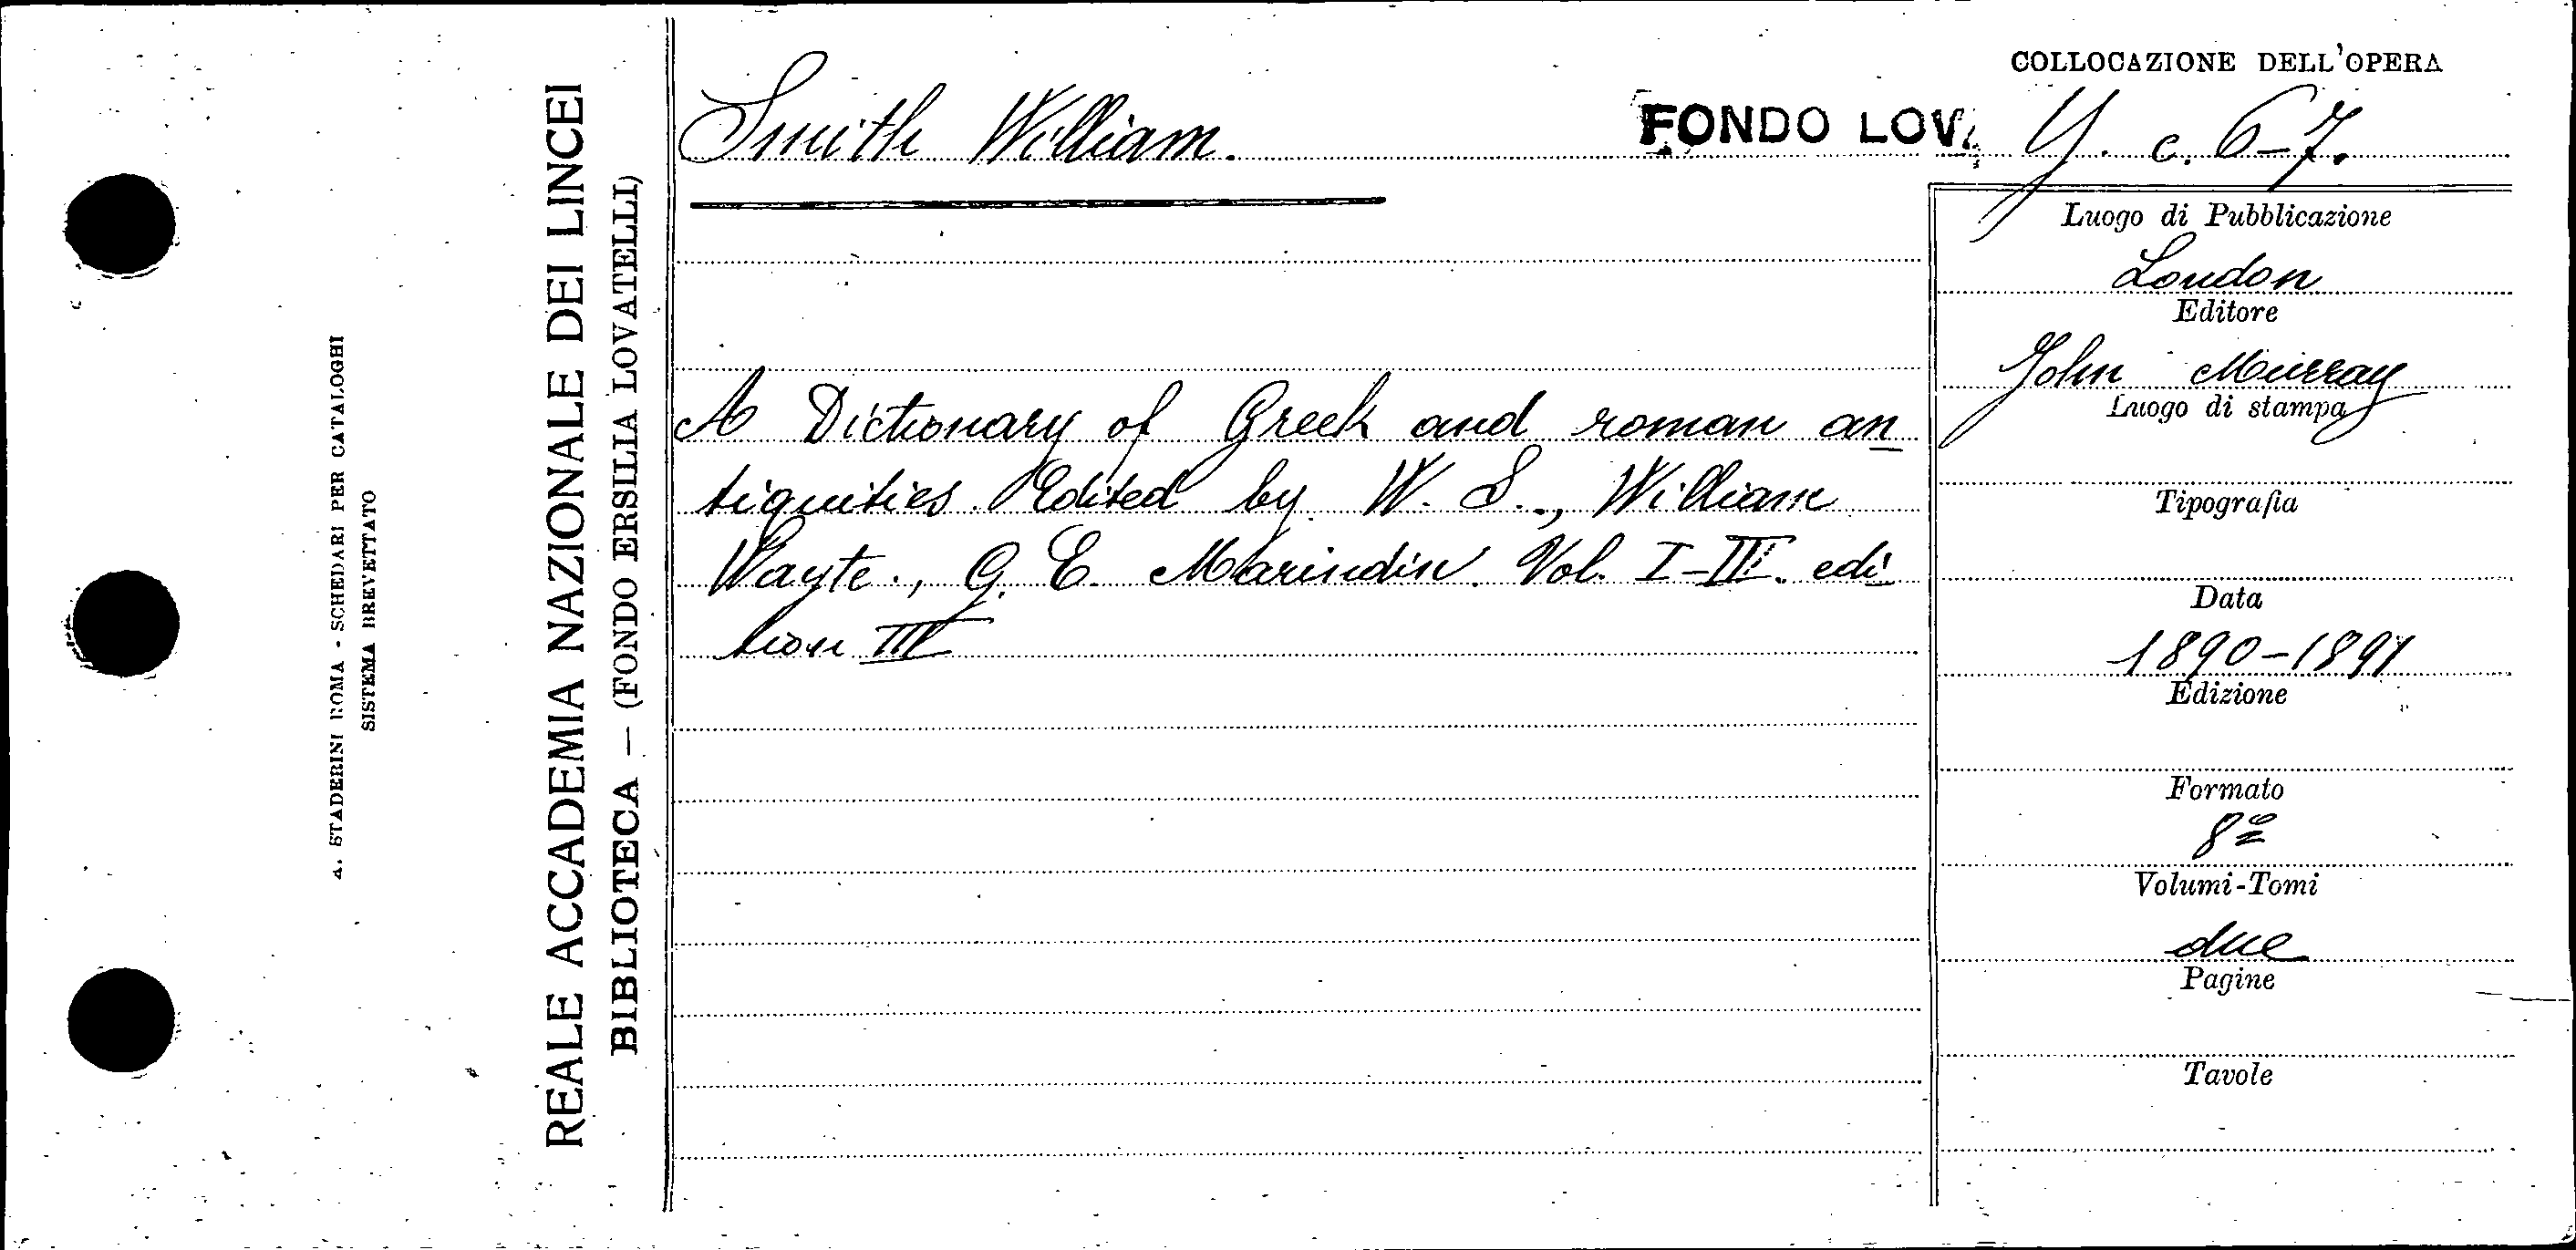 COLLOCAZIONE DELL'OPERA
Smith William.
FONDO LOV. Y. c. 6-7.
A Dictionary of Greek and roman an
tiquities. Edited by W. S., William
Wayte., G. E. Marindin. Vol. I-II. edi
tion III
Luogo di Pubblicazione
London
Editore
John Murray
Luogo di stampa
Tipografia
Data
1890-1891
Edizione
Formato
8º
Volumi-Tomi
due
Pagine
Tavole
REALE ACCADEMIA NAZIONALE DEI LINCEI
BIBLIOTECA — (FONDO ERSILIA LOVATELLI)
A. STADERINI ROMA - SCHEDARI PER CATALOGHI
SISTEMA BREVETTATO